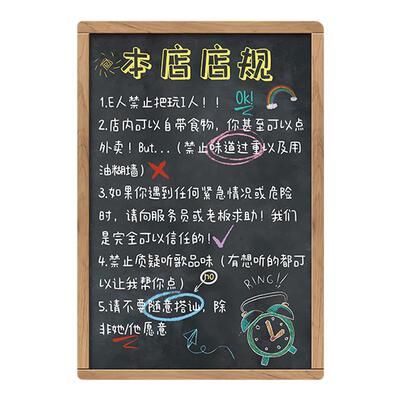 本店店规
1.E人禁止把玩I人！！ Ok!
2.店内可以自带食物，你甚至可以点
外卖！But...（禁止味道过重以及用
油糊墙）
3.如果你遇到任何紧急情况或危险
时，请向服务员或老板求助！我们
是完全可以信任的！
4.禁止质疑听歌品味（有想听的都可
以让我帮你点）
no
RING!!
5.请不要随意搭讪，除
非她/他愿意